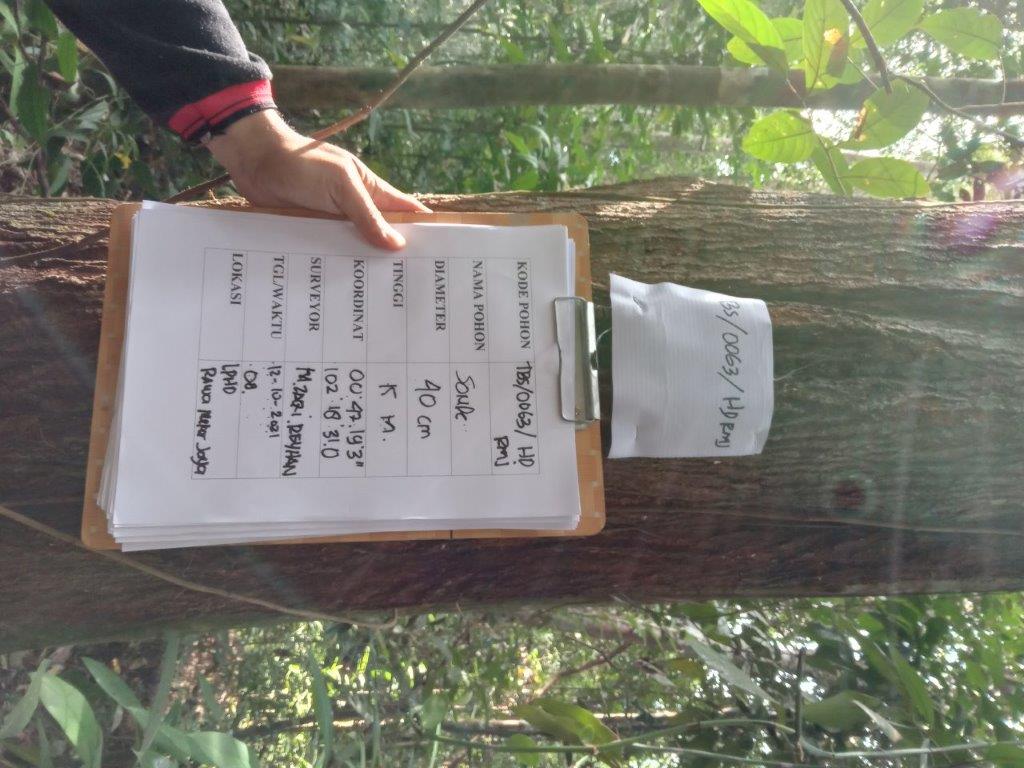 TBS/0063/HD RMJ
KODE POHON TBS/0063/ HD
RMJ
NAMA POHON SONDE
DIAMETER 40 cm
TINGGI M.
KOORDINAT 00° 47' 19'3"
102° 18' 31.0
SURVEYOR M. ZAQI. REYHAN
TGL/WAKTU 12-10-2021
08.
LOKASI LPHD
Rawa Mekar Jaya